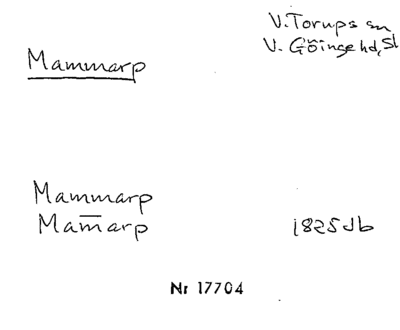 V. Torups sn
V. Göinge hd, Sk
Mammarp
Mammarp
Mam̅arp 1825 Jb
Nr 17704